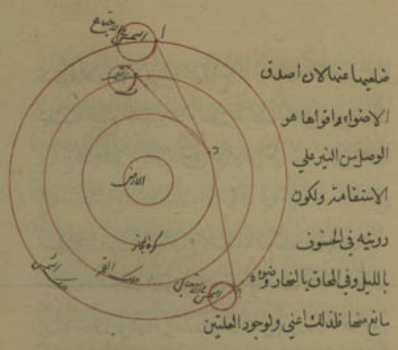 ضلعيها عنها لان اصدق
الاضواء واقواها هو
الوصل من النير علي
الاستقامة ولكون
رويته في الخسوف
بالليل وفي المحاق بالنهار وضوءه
مانع منها فلذلك اعني ولوجود العلتين
الشمس عند الاجتماع
ا
القمر
ب
د
الارض
كرة البخار
فلك القمر
فلك الشمس
الشمس عند الاستقبال